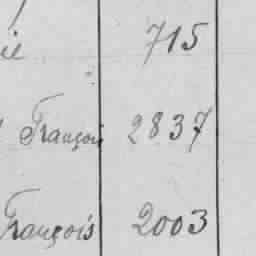 715
François 2837
François 2003